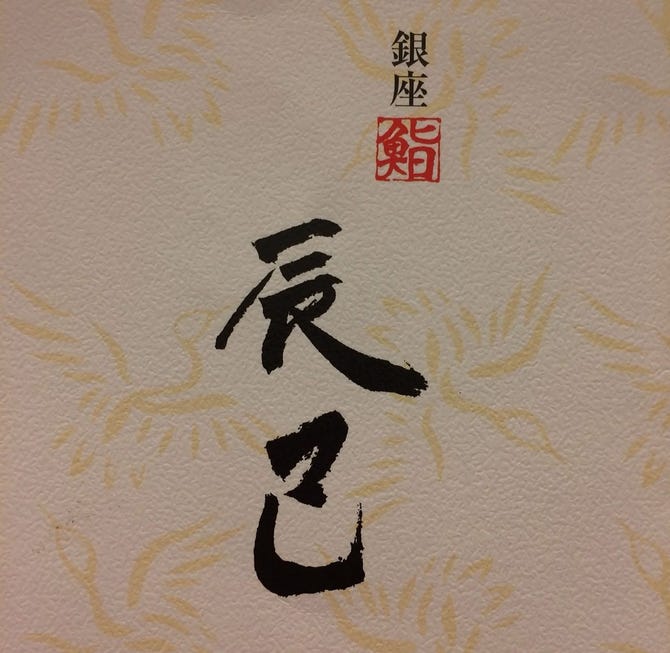 銀座
鮨
辰巳